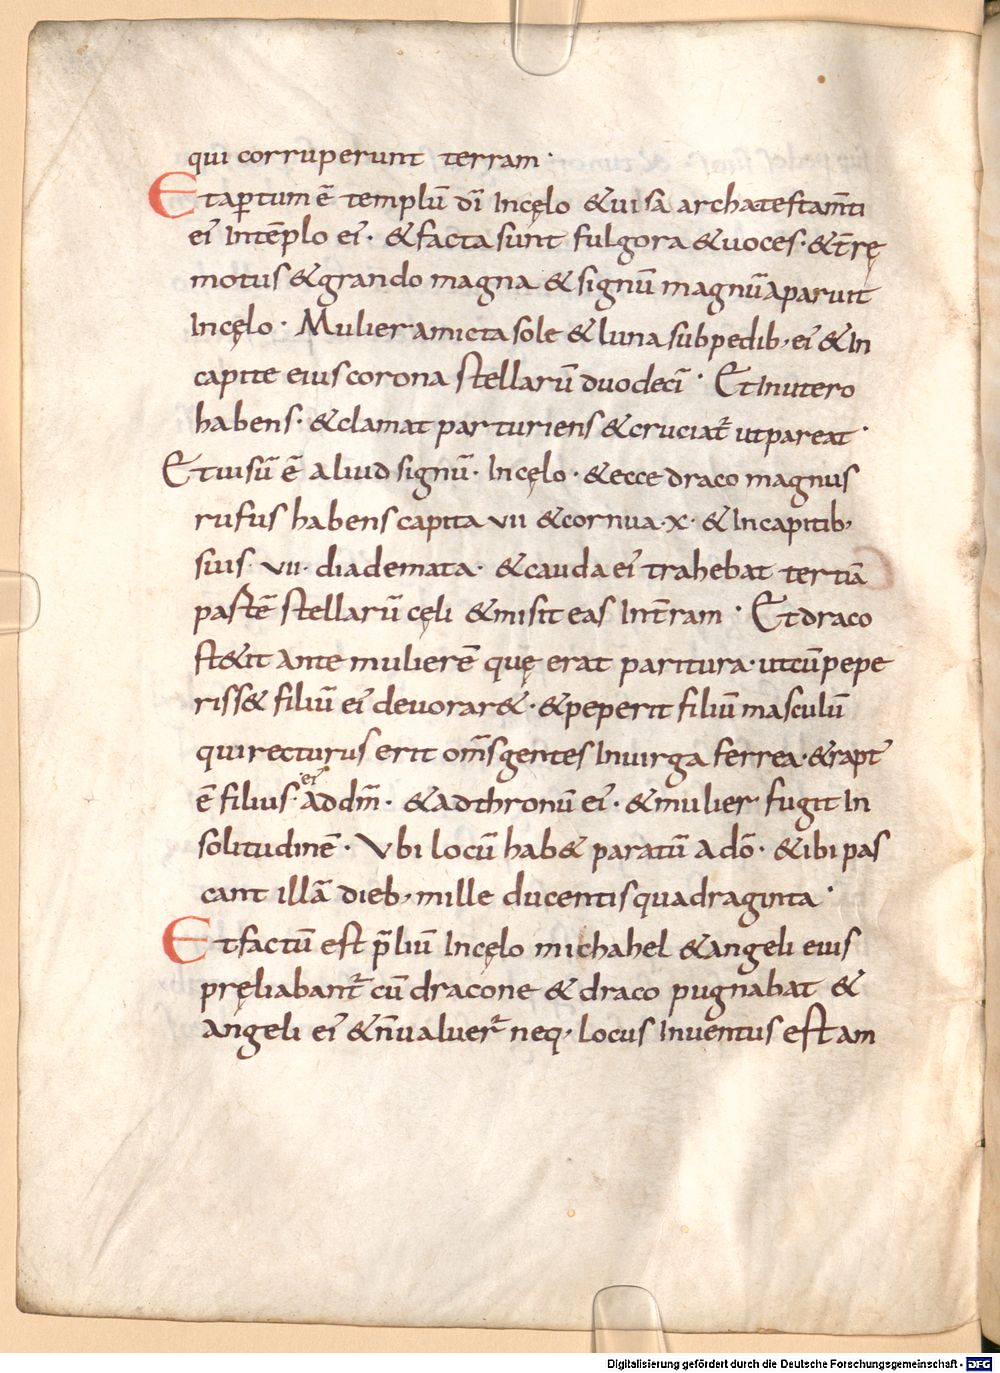 qui corruperunt terram·
Et aꝑtum ē templū dī In cęlo & uisa archa testam̄ti
eī In tēplo eī· & facta sunt fulgora & uoces· & t̄rę
motus & grando magna & signū magnū aparuit
In cęlo· Mulier amicta sole & luna sub pedib; eī & In
capite eius corona stellarū duodecī· Et In utero
habens· & clamat parturiens & cruciat̄ ut pareat·
Et uisū ē aliud signū· In cęlo· & ecce draco magnus
rufus habens capita vii & cornua·x· & In capitib;
suis· vii· diademata· & cauda eī trahebat tertiā
partē stellarū cęli & misit eas In t̄ram· Et draco
stetit ante mulierē quę erat paritura· ut cū pepe
riss& filiū eī deuorar&· & peperit filiū masculū
qui recturus erit om̄s gentes In uirga ferrea· & rapt̄
ē filius eī ad dm̄· & ad thronū eī· & mulier fugit In
solitudinē· Ubi locū hab& paratū a dō· & ibi pas
cant illā dieb; mille ducentis quadraginta·
Et factū est p̄liū In cęlo michahel & angeli eius
pręliabant̄ cū dracone & draco pugnabat &
angeli eī & n̄ ualuer̄ neq; locus Inuentus est am
Digitalisierung gefördert durch die Deutsche Forschungsgemeinschaft - DFG